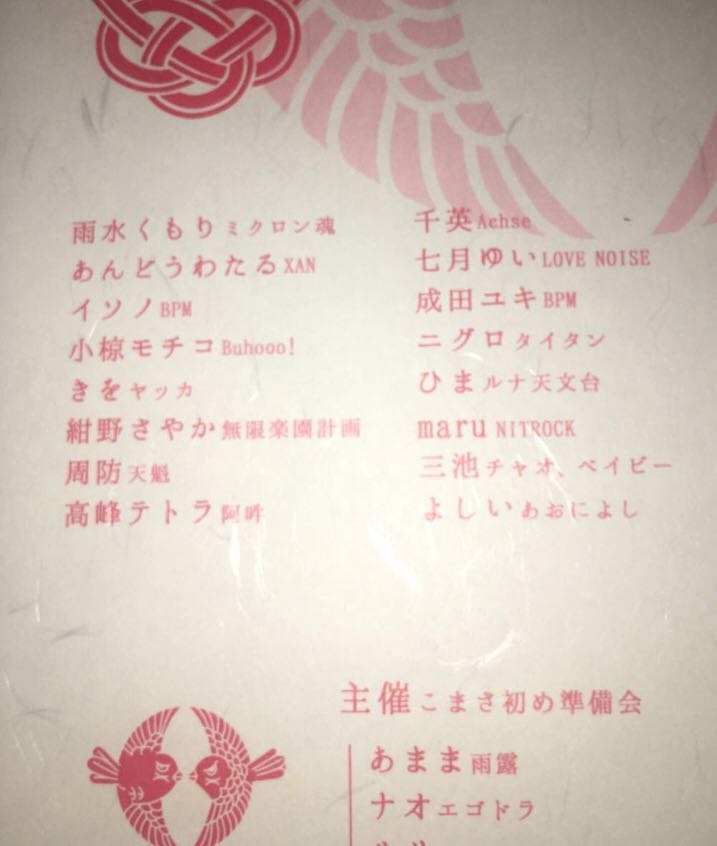 雨水くもりミクロン魂
あんどうわたるXAN
イソノBPM
小椋モチコBuhooo!
きをヤッカ
紺野さやか無限楽園計画
周防天魁
高峰テトラ阿吽
千英Achse
七月ゆいLOVE NOISE
成田ユキBPM
ニグロタイタン
ひまルナ天文台
maru NITROCK
三池チャオ、ベイビー
よしいあおによし
主催こまさ初め準備会
あまま雨露
ナオエゴドラ